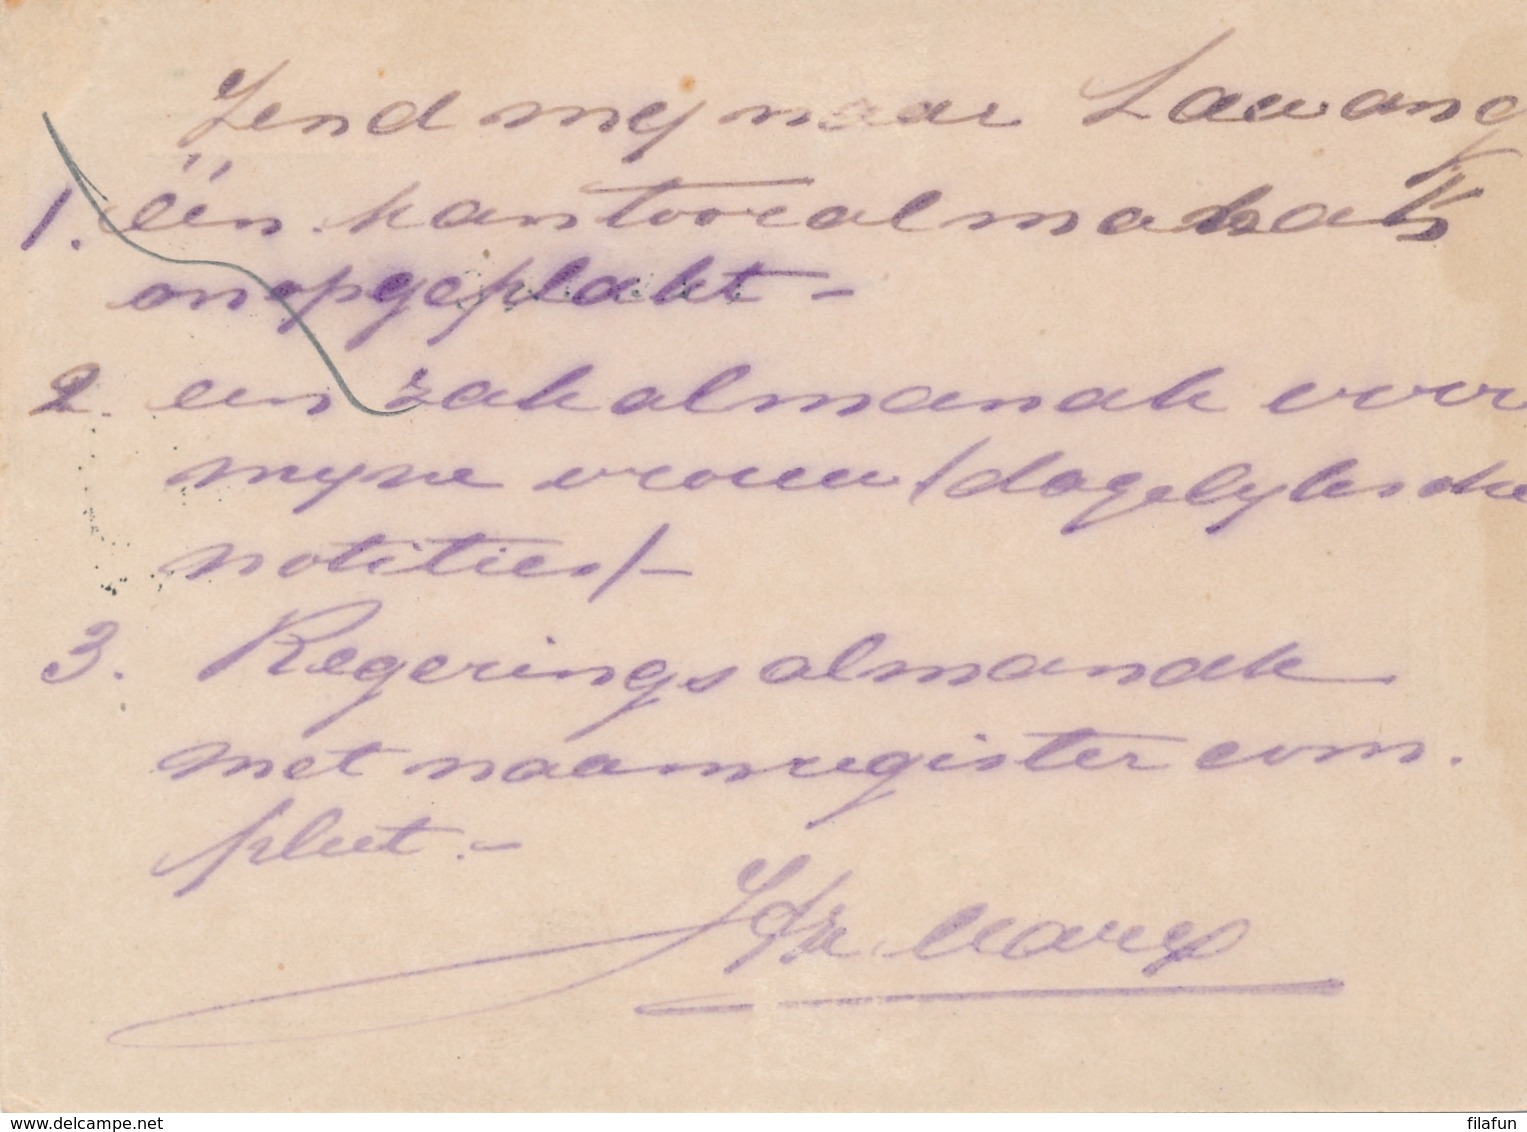 Zend mij naar Lawang
1. één kantooralmanak
onopgeplakt -
2. een zakalmanak voor
mijne vrouw /dagelijksche
notities/-
3. Regeringsalmanak
met naamregister com.
pleet.-
www.delcampe.net
filafun